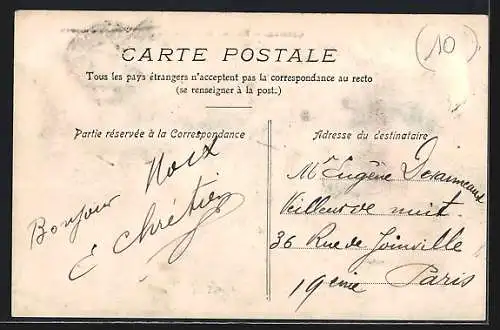 (10)
CARTE POSTALE
Tous les pays étrangers n'acceptent pas la correspondance au recto
(se renseigner à la post.)
Partie réservée à la Correspondance
Bonjour
E Chrétien
Adresse du destinataire
Mr Eugène Desarmeaux
Veilleur de nuit
36 Rue de Joinville
19ème Paris